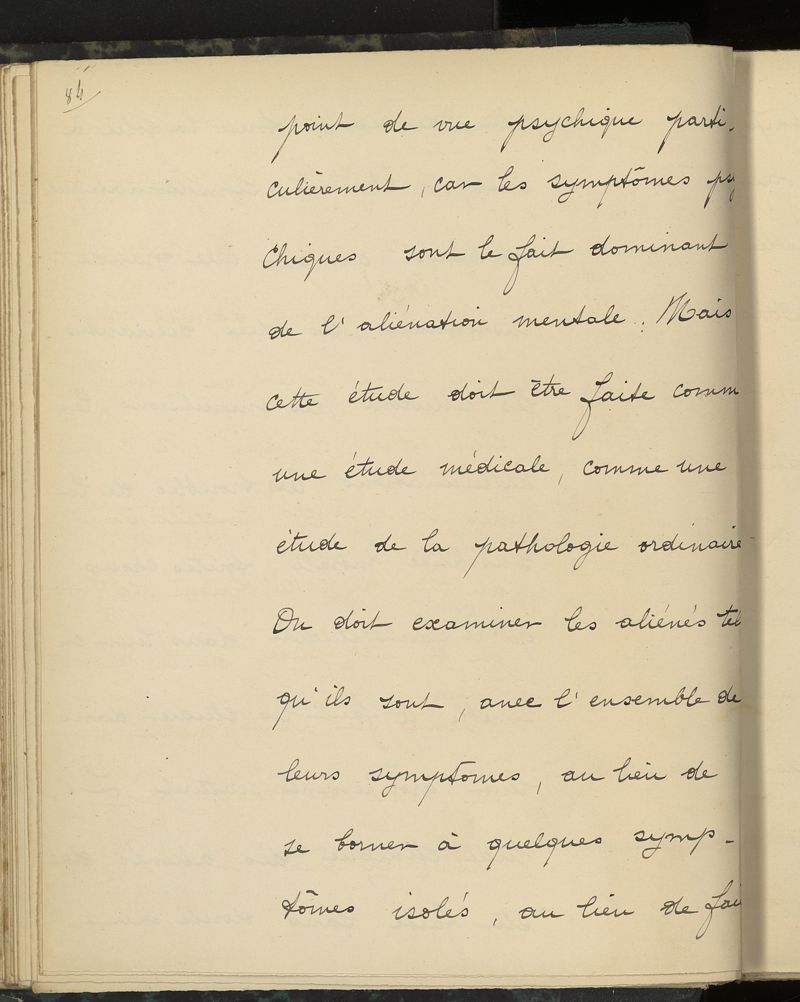 84
point de vue psychique parti-
culièrement, car les symptômes psy
chiques sont le fait dominant
de l'aliénation mentale. Mais
cette étude doit être faite comm
une étude médicale, comme une
étude de la pathologie ordinaire
On doit examiner les aliénés tel
qu'ils sont, avec l'ensemble de
leurs symptomes, au lieu de
se borner à quelques symp-
tômes isolés, au lieu de fai